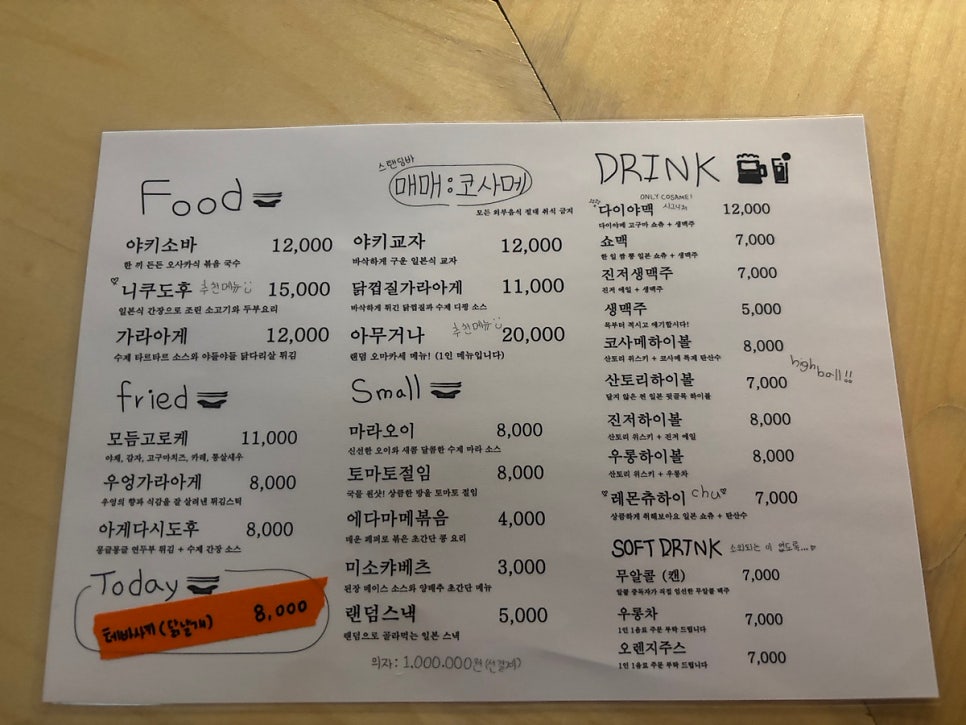 Food
야키소바 12,000
한 끼 든든 오사카식 볶음 국수
니쿠도후 추천메뉴 15,000
일본식 간장으로 조린 소고기와 두부요리
가라아게 12,000
수제 타르타르 소스와 야들야들 닭다리살 튀김
fried
모듬고로케 11,000
야채, 감자, 고구마치즈, 카레, 통살새우
우엉가라아게 8,000
우엉의 향과 식감을 잘 살려낸 튀김스틱
아게다시도후 8,000
몽글몽글 연두부 튀김 + 수제 간장 소스
Today
테바사끼 (닭날개) 8,000
스탠딩바
매매:코사메
모든 외부음식 절대 취식 금지
야키교자 12,000
바삭하게 구운 일본식 교자
닭껍질가라아게 11,000
바삭하게 튀긴 닭껍질과 수제 디핑 소스
아무거나 추천메뉴 20,000
랜덤 오마카세 메뉴! (1인 메뉴입니다)
Small
마라오이 8,000
신선한 오이와 새콤 달콤한 수제 마라 소스
토마토절임 8,000
국물 원샷! 상큼한 방울 토마토 절임
에다마메볶음 4,000
매운 페퍼로 볶은 초간단 콩 요리
미소캬베츠 3,000
된장 베이스 소스와 양배추 초간단 메뉴
랜덤스낵 5,000
랜덤으로 골라먹는 일본 스낵
의자: 1.000.000원 (선결제)
DRINK
ONLY COSAME!
다이야맥 시그니처 12,000
다이야메 고구마 쇼츄 + 생맥주
쇼맥 7,000
한 일 짬 뽕 일본 쇼츄 + 생맥주
진저생맥주 7,000
진저 에일 + 생맥주
생맥주 5,000
목부터 적시고 얘기합시다!
코사메하이볼 8,000
산토리 위스키 + 코사메 특제 탄산수
highball!!
산토리하이볼 7,000
달지 않은 찐 일본 뒷골목 하이볼
진저하이볼 8,000
산토리 위스키 + 진저 에일
우롱하이볼 8,000
산토리 위스키 + 우롱차
레몬츄하이 chu 7,000
상큼하게 취해보아요 일본 쇼츄 + 탄산수
SOFT DRINK 소외되는 이 없도록...
무알콜 (캔) 7,000
알콜 중독자가 직접 엄선한 무알콜 맥주
우롱차 7,000
1인 1음료 주문 부탁 드립니다
오렌지주스 7,000
1인 1음료 주문 부탁 드립니다